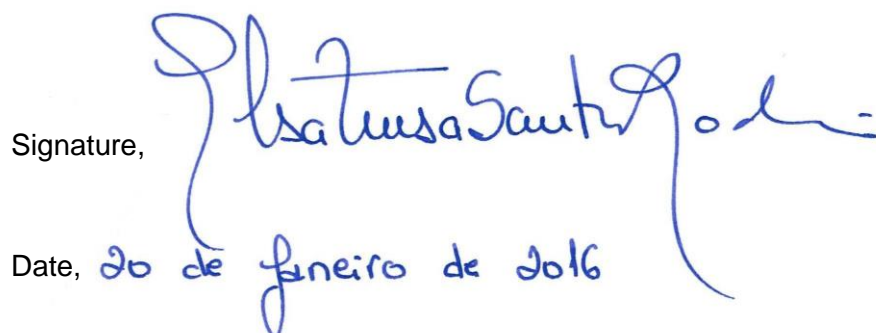 Signature, Elsa Santos Rod
Date, 20 de Janeiro de 2016